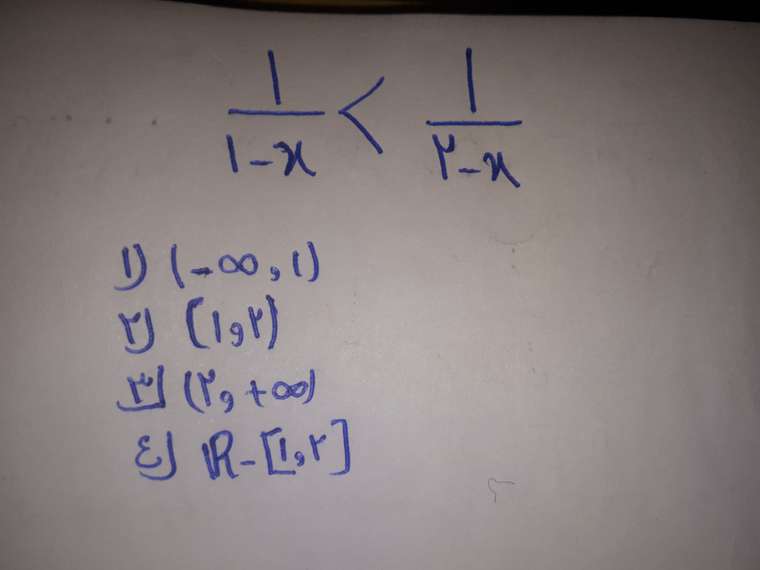 ۱/(۱-x) < ۱/(۲-x)
۱) (-∞, ۱)
۲) (۱, ۲)
۳) (۲, +∞)
٤) ℝ-[۱, ۲]